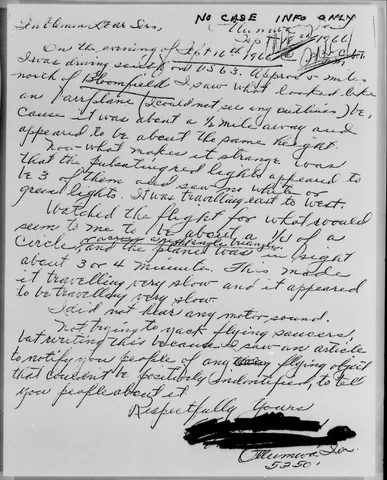 NO CASE INFO ONLY
Ottumwa Ia.
Sept 18th 1966
Gentlemen Dear Sirs,
On the evening of Sept 16th 1966
I was driving south on US 63. Approx mile
north of Bloomfield I saw what looked like
an airplane (I could not see any outlines) be,
cause it was about a ½ mile away and
appeared to be about the same height.
Now what makes it strange was
that the pulsating red lights appeared to
be 3 of them and saw no white or
green lights. It was travelling east to west.
Watched the flight for what would
seem to me to be about a ¼ of a
circle or across a right angle triangle and the plane was in sight
about 3 or 4 minute. This made
it travelling very slow and it appeared
to be travelling very slow
I did not hear any motor sound.
Not trying to yack flying saucers,
but writing this because I saw an article
to notify you people of any flying object
that couldn't be positively indentified, to tell
you people about it
Respectfully Yours
Ottumwa Ia.
52501